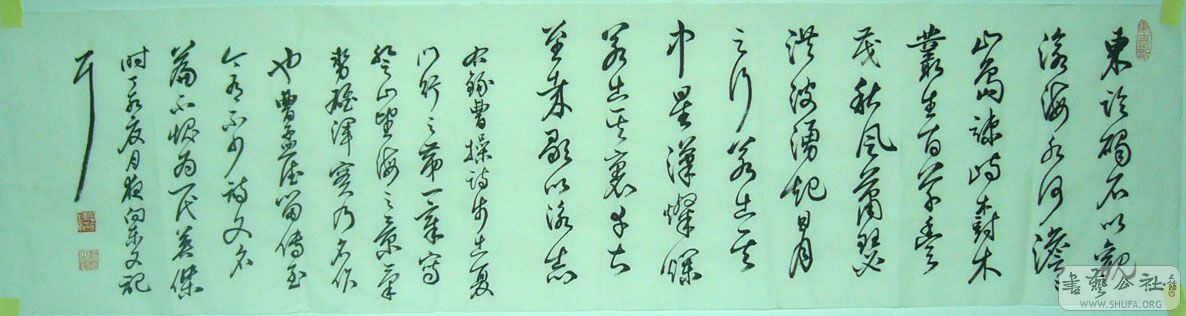 東臨碣石以觀
滄海水何澹〻
山島竦峙樹木
叢生百草豐
茂秋風蕭瑟
洪波湧起日月
之行若出其
中星漢燦爛
若出其裏幸甚
至哉歌以詠志
右錄曹操詩步出夏
門行之第一章寫
登山望海之景筆
勢雄渾實乃名作
也曹孟德留傳至
今者不少詩文名
篇不愧為一代英傑
时丁亥月夜向東文記
書藝公社
WWW.SHUFA.ORG